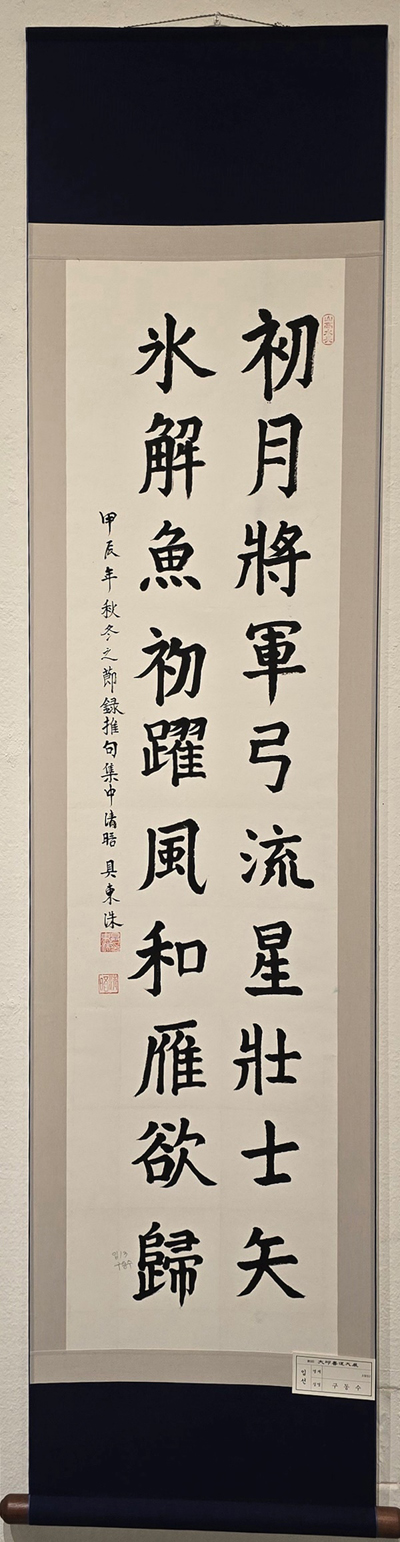 初月將軍弓流星壯士矢
氷解魚初躍風和雁欲歸
甲辰年秋冬之節錄推句集中清晤 具東洙
입선
구동수